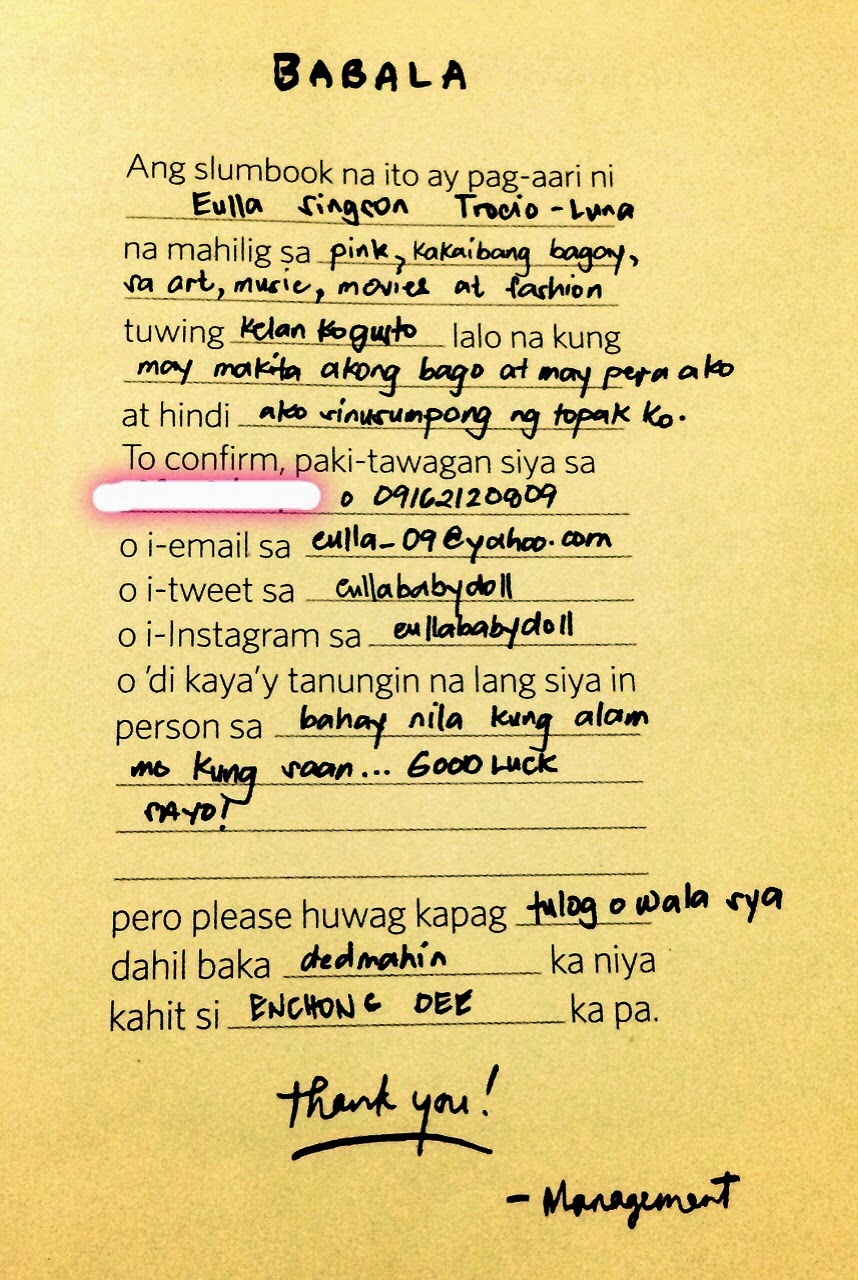 BABALA
Ang slumbook na ito ay pag-aari ni
Eulla Singson Trocio-Luna
na mahilig sa pink, kakaibang bagay,
sa art, music, movies at fashion
tuwing kelan ko gusto lalo na kung
may makita akong bago at may pera ako
at hindi ako sinusumpong ng topak ko.
To confirm, paki-tawagan siya sa
o 09162120809
o i-email sa eulla_09@yahoo.com
o i-tweet sa eullababydoll
o i-Instagram sa eullababydoll
o 'di kaya'y tanungin na lang siya in
person sa bahay nila kung alam
mo kung saan... GOOD LUCK
SAYO!
pero please huwag kapag tulog o wala sya
dahil baka dedmahin ka niya
kahit si ENCHONG DEE ka pa.
Thank you!
- Management